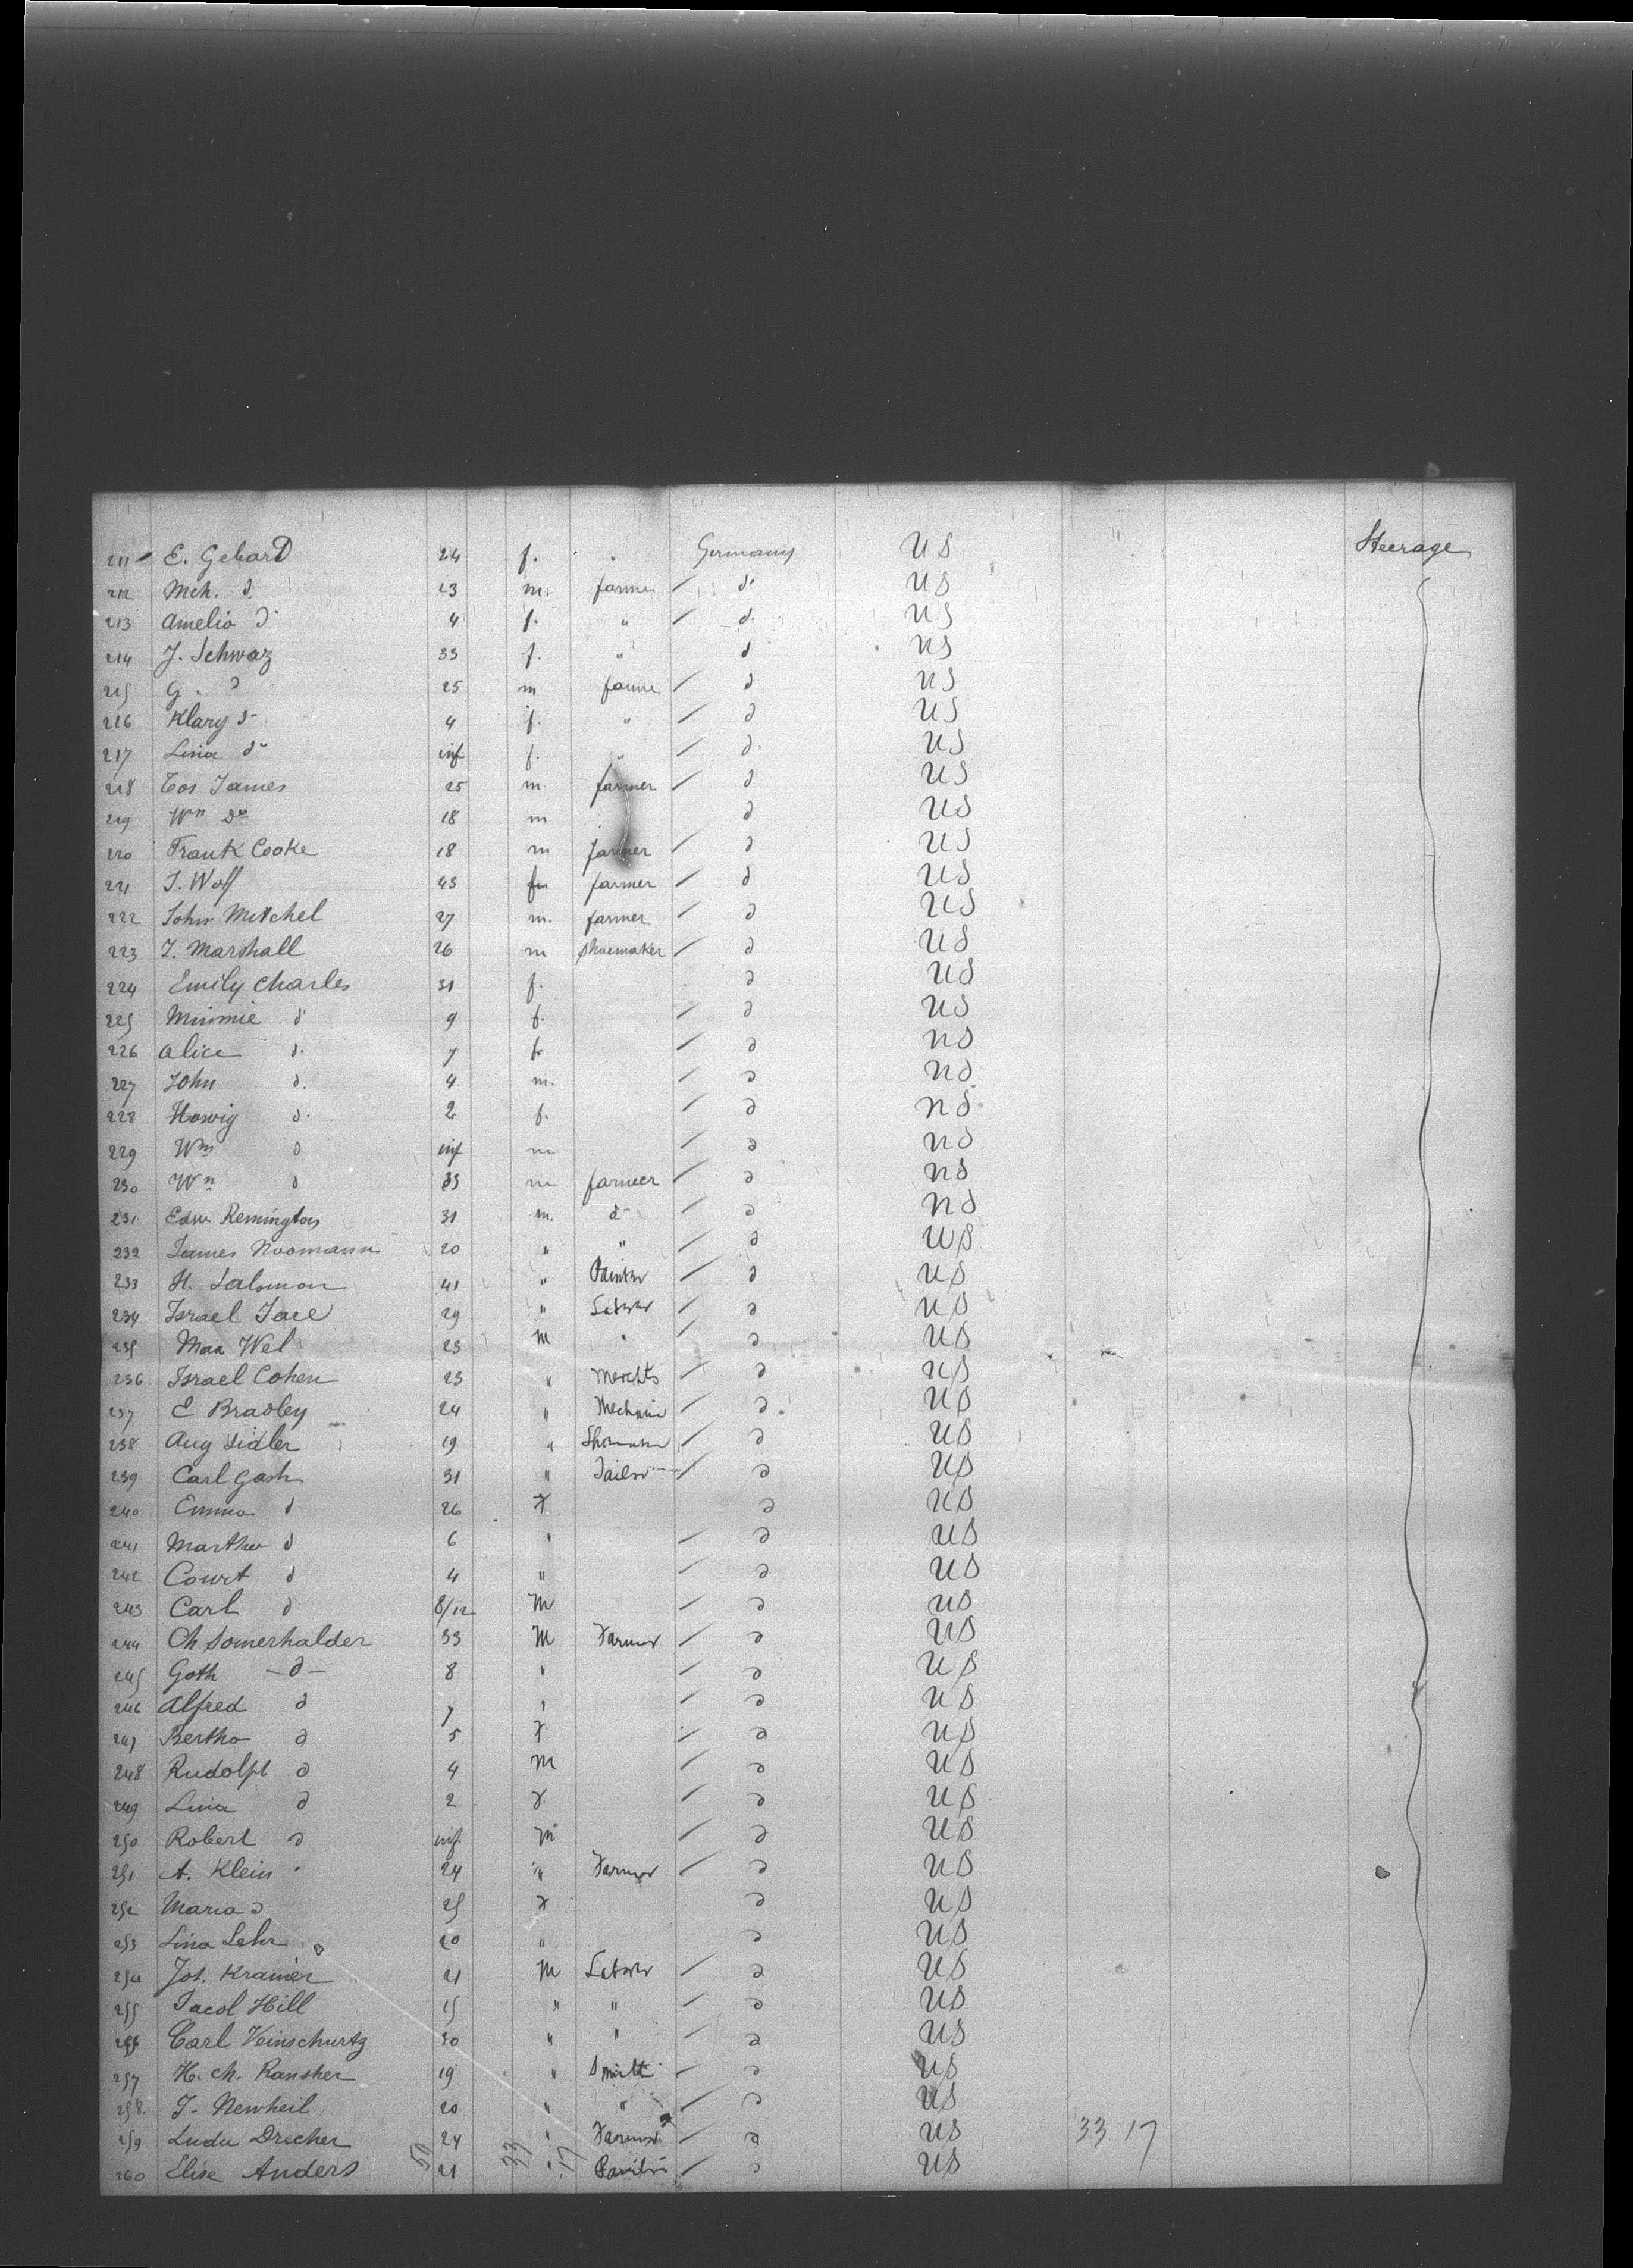 211 E. Gebard 24 f. " Germany US Steerage
212 Mch. d. 23 m. farmer d. US
213 Amelia d 4 f. " d. US
214 J. Schwaz 33 f. " d US
215 G. d 25 m farmer d US
216 Klary d 4 f. " d US
217 Lina do inf f. " d. US
218 Cos James 25 m. farmer d US
219 Wm Do 18 m d US
220 Frank Cooke 18 m farmer d US
221 J. Wolf 43 farmer d US
222 John Mitchel 27 m. farmer d US
223 J. Marshall 26 m Shoemaker d US
224 Emily Charles 31 f. d US
225 Minnie d 9 f. d US
226 Alice d. 7 f. d US
227 John d. 4 m. d US
228 Howig d. 2 f. d US
229 Wm d inf m d US
230 Wm d 33 m farmer d US
231 Edw Remington 31 m. d d US
232 James Noomann 20 " " d US
233 H. Salomon 41 " Painter d US
234 Israel 29 " Laborer d US
235 Max Wel 23 M " d US
236 Israel Cohen 23 " Merchts d US
237 E Bradley 24 " Mechanic d US
238 Aug Sidler 19 " d US
239 Carl Gash 31 " Tailor d US
240 Emma d 26 F d US
241 Martha d 6 " d US
242 Court d 4 " d US
243 Carl d 8/12 M d US
244 Ch Somerhalder 33 M Farmer d US
245 Goth -d- 8 " d US
246 Alfred d 7 " d US
247 Bertha d 5 F d US
248 Rudolph d 4 M d US
249 Lina d 2 F. d US
250 Robert d inf M d US
251 A. Klein 24 " Farmer d US
252 Maria d 25 F d US
253 Lina Lehr 20 " d US
254 Jos. Kramer 21 M Laborer d US
255 Jacob Hill 15 " " d US
256 Carl Veinschurtz 30 " " d US
257 H. Ch. Ransher 19 " Smith d US
258. J. Newheil 20 " " d US
259 Ludu Drecher 24 " Farmer d US 33 17
260 Elise Anders 50 21 33 " 17 d US